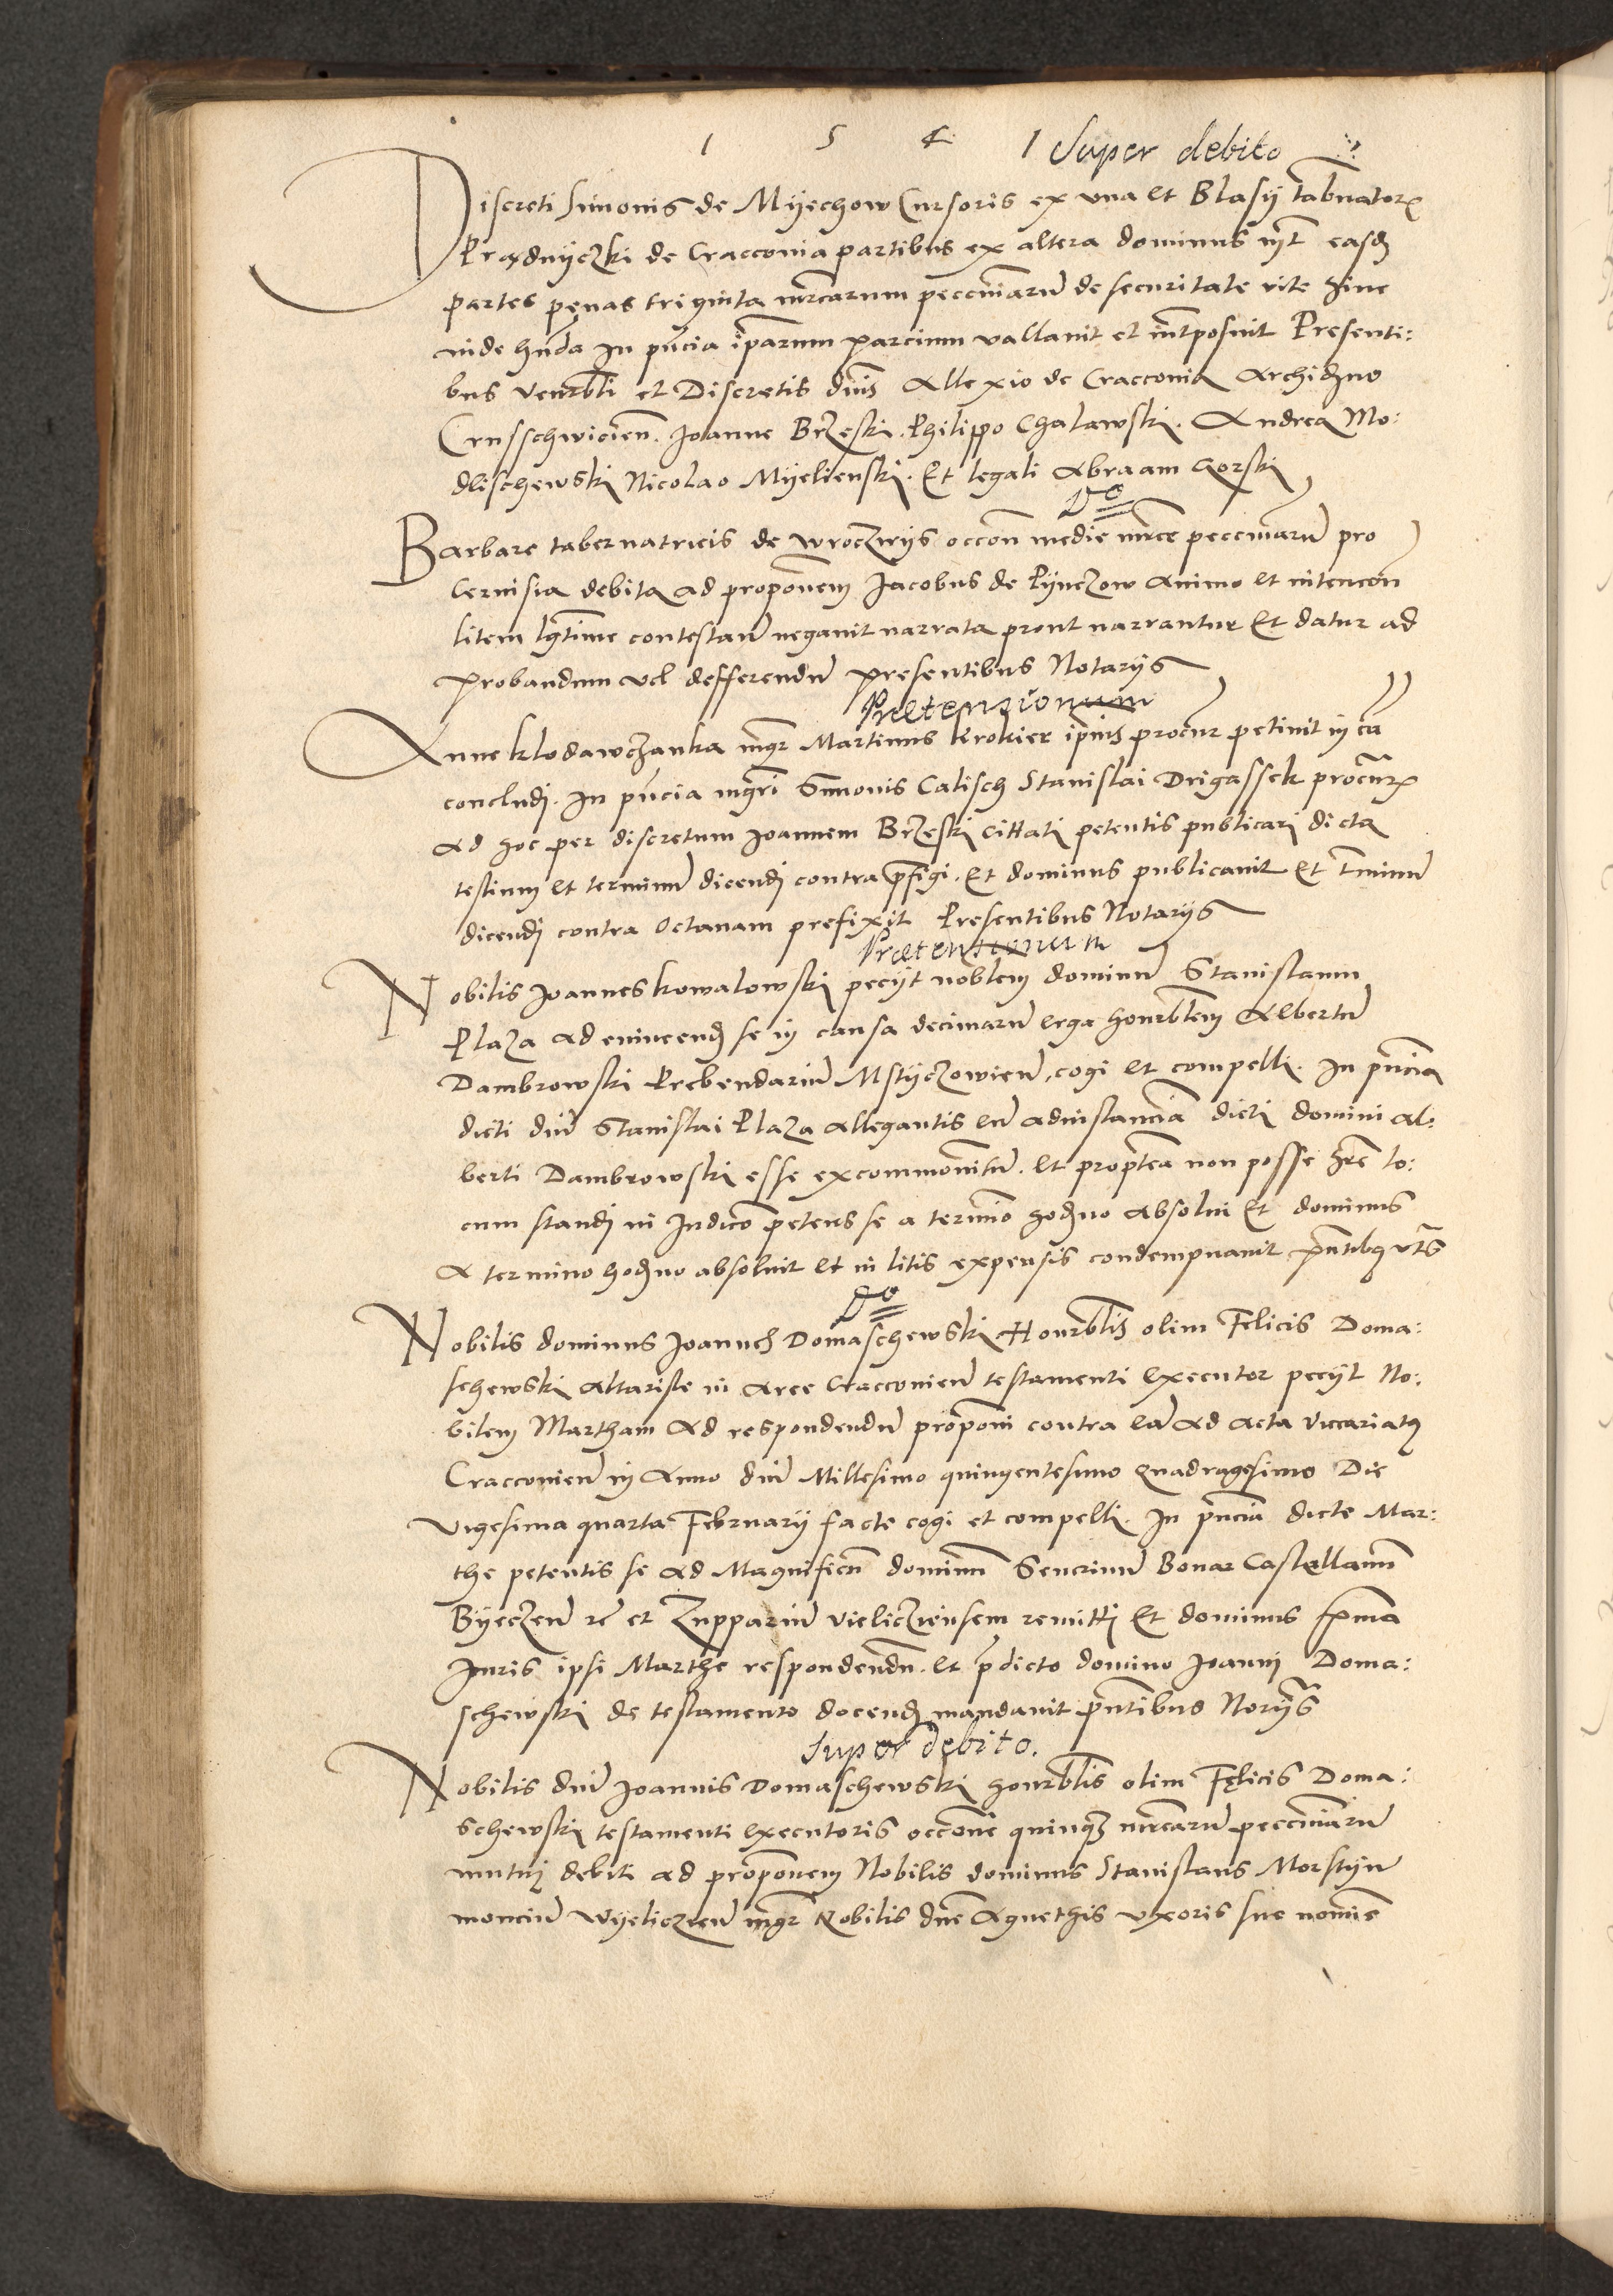 1 5 4 1 Super debito
Discreti Simonis de Myechow Cursoris ex una et Blasy tabnator
Prądnyczki de Cracconia partibus ex altera dominus int easd
partes penas triginta mrcarum peccuniaru de securitate vite hinc
inde hnda In pncia iparum parcium vallauit et interposuit Presenti:
bus venrbli et Discretis dnis Allexio de Cracconia Archidno
Crusschwicien. Joanne Brzeski. Philippo Chalawski. Andrea Mo:
dlischewski Nicolao Myelienski. Et legali Abraam Gorski
Do
Barbare tabernatricis de wroczirys occon medie mrce peccuniaru pro
Ceruisia debita ad proponem Jacobus de Pynczow animo et intencon
litem lgtime contestan negauit narrata prout narrantur Et datur ad
probandum vel defferendu presentibus Notarys
Praetensionum
Anne klodawczanka mgr Martinus Krokier ipius procur petiuit in ca
concludi. In pncia mgri Simonis Calisch Stanislai Drigassek procur
ad hoc per discretum Joannem Brzeski cittati petentis publicari dicta
testium et terminu dicendi contra pfigi. Et dominus publicauit Et tminu
dicendi contra Octauam prefixit Presentibus Notarys
Praetensionum
Nobilis Joannes kowalowski pecyt noblem dominu Stanislaum
Plaza ad euincend se in causa decimaru erga honrblem Albertu
Dambrowski Prebendariu Mstyczowien, cogi et compelli. In pncia
dicti dni Stanislai Plaza allegantis eu adinstancia dicti domini Al:
berti Dambrowski esse excommonitu. Et proptea non posse hre lo:
cum standi in Judico petens se a termio hodno absolui Et dominus
a termino hodno absoluit et in litis expensis condempnauit pntibus uts
Do
Nobilis dominus Joannes Domaschewski Honrblis olim Felicis Doma:
schewski altariste in arce Cracconien testamenti executor pecyt No:
bilem Martham ad respondendu proponi contra ea ad acta vicariatus
Cracconien in anno dni Millesimo quingentesimo Quadragesimo Die
vigesima quarta February facte cogi et compelli. In pncia dicte Mar:
the petentis se ad Magnificu dominum Seuerinu Bonar Castellanu
Byeczen re et Zuppariu vieliczyensem remitti Et dominus
Juris ipsi Marthe respondendu. et pdicto domino Joanni Doma:
schewski de testamento docend mandauit pntibus Norys
Super debito.
Nobilis dni Joannis Domaschewski honrblis olim Felicis Doma:
schewski testamenti executoris occone quinq mrcaru peccuniaru
mutui debiti ad proponem Nobilis dominus Stanislaus Morstyn
Wyeliczien mgr Nobilis dne Agnethis vxoris sue nomie